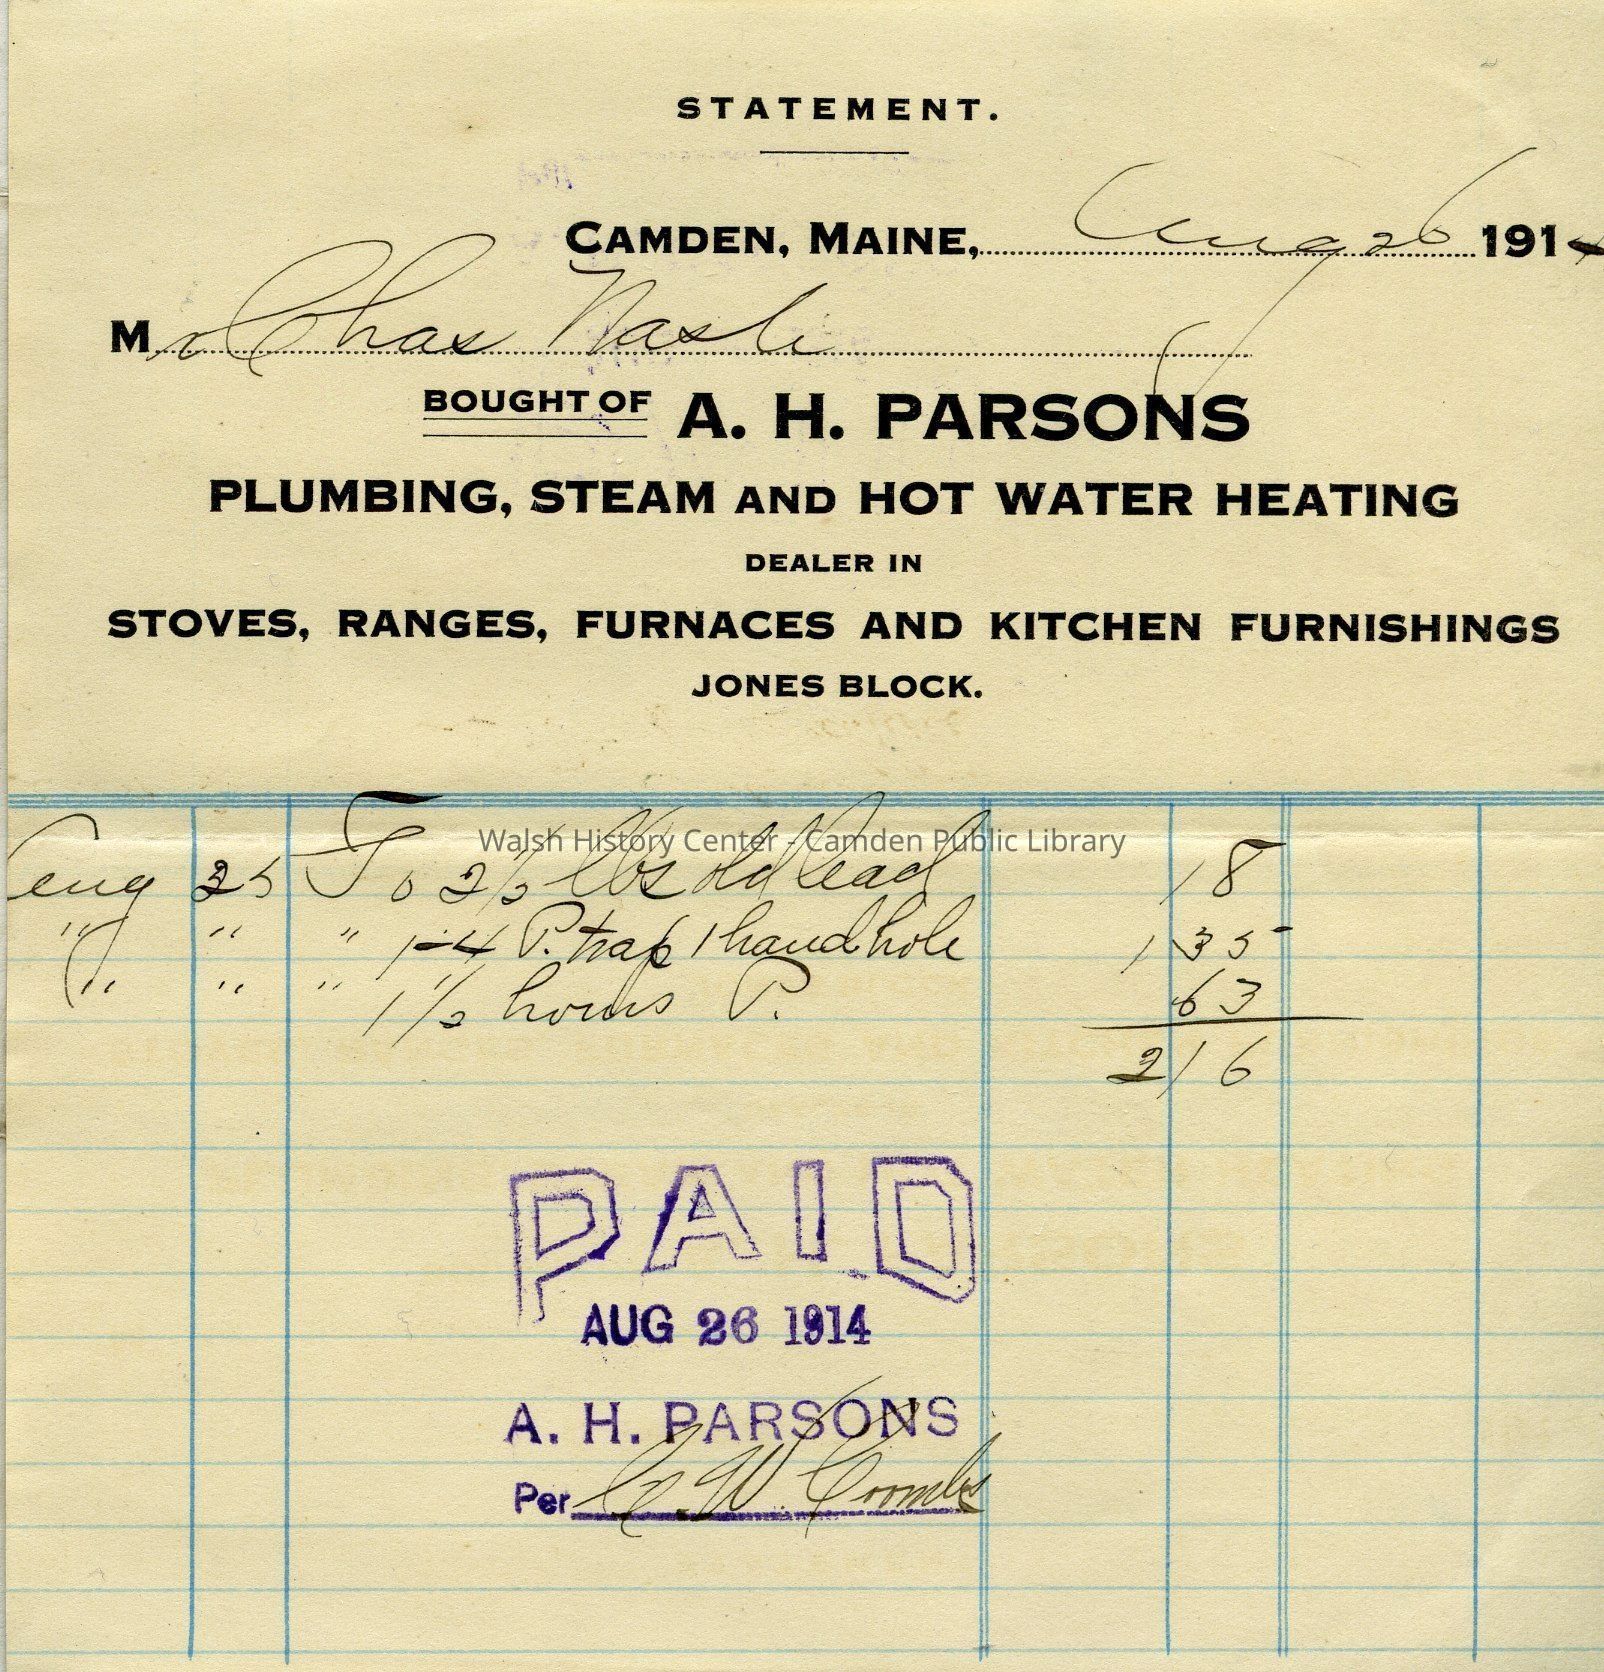 STATEMENT.
CAMDEN, MAINE, Aug 26 1914
Mr Chas Nash
BOUGHT OF A. H. PARSONS
PLUMBING, STEAM AND HOT WATER HEATING
DEALER IN
STOVES, RANGES, FURNACES AND KITCHEN FURNISHINGS
JONES BLOCK.
Walsh History Center - Camden Public Library
Aug 25 To 2 1/2 lbs old lead 18
" " " 1-4 P. trap 1 handhole 1 35
" " " 1 1/2 hours P. 63
2 16
PAID
AUG 26 1914
A. H. PARSONS
Per C. W. Coombs